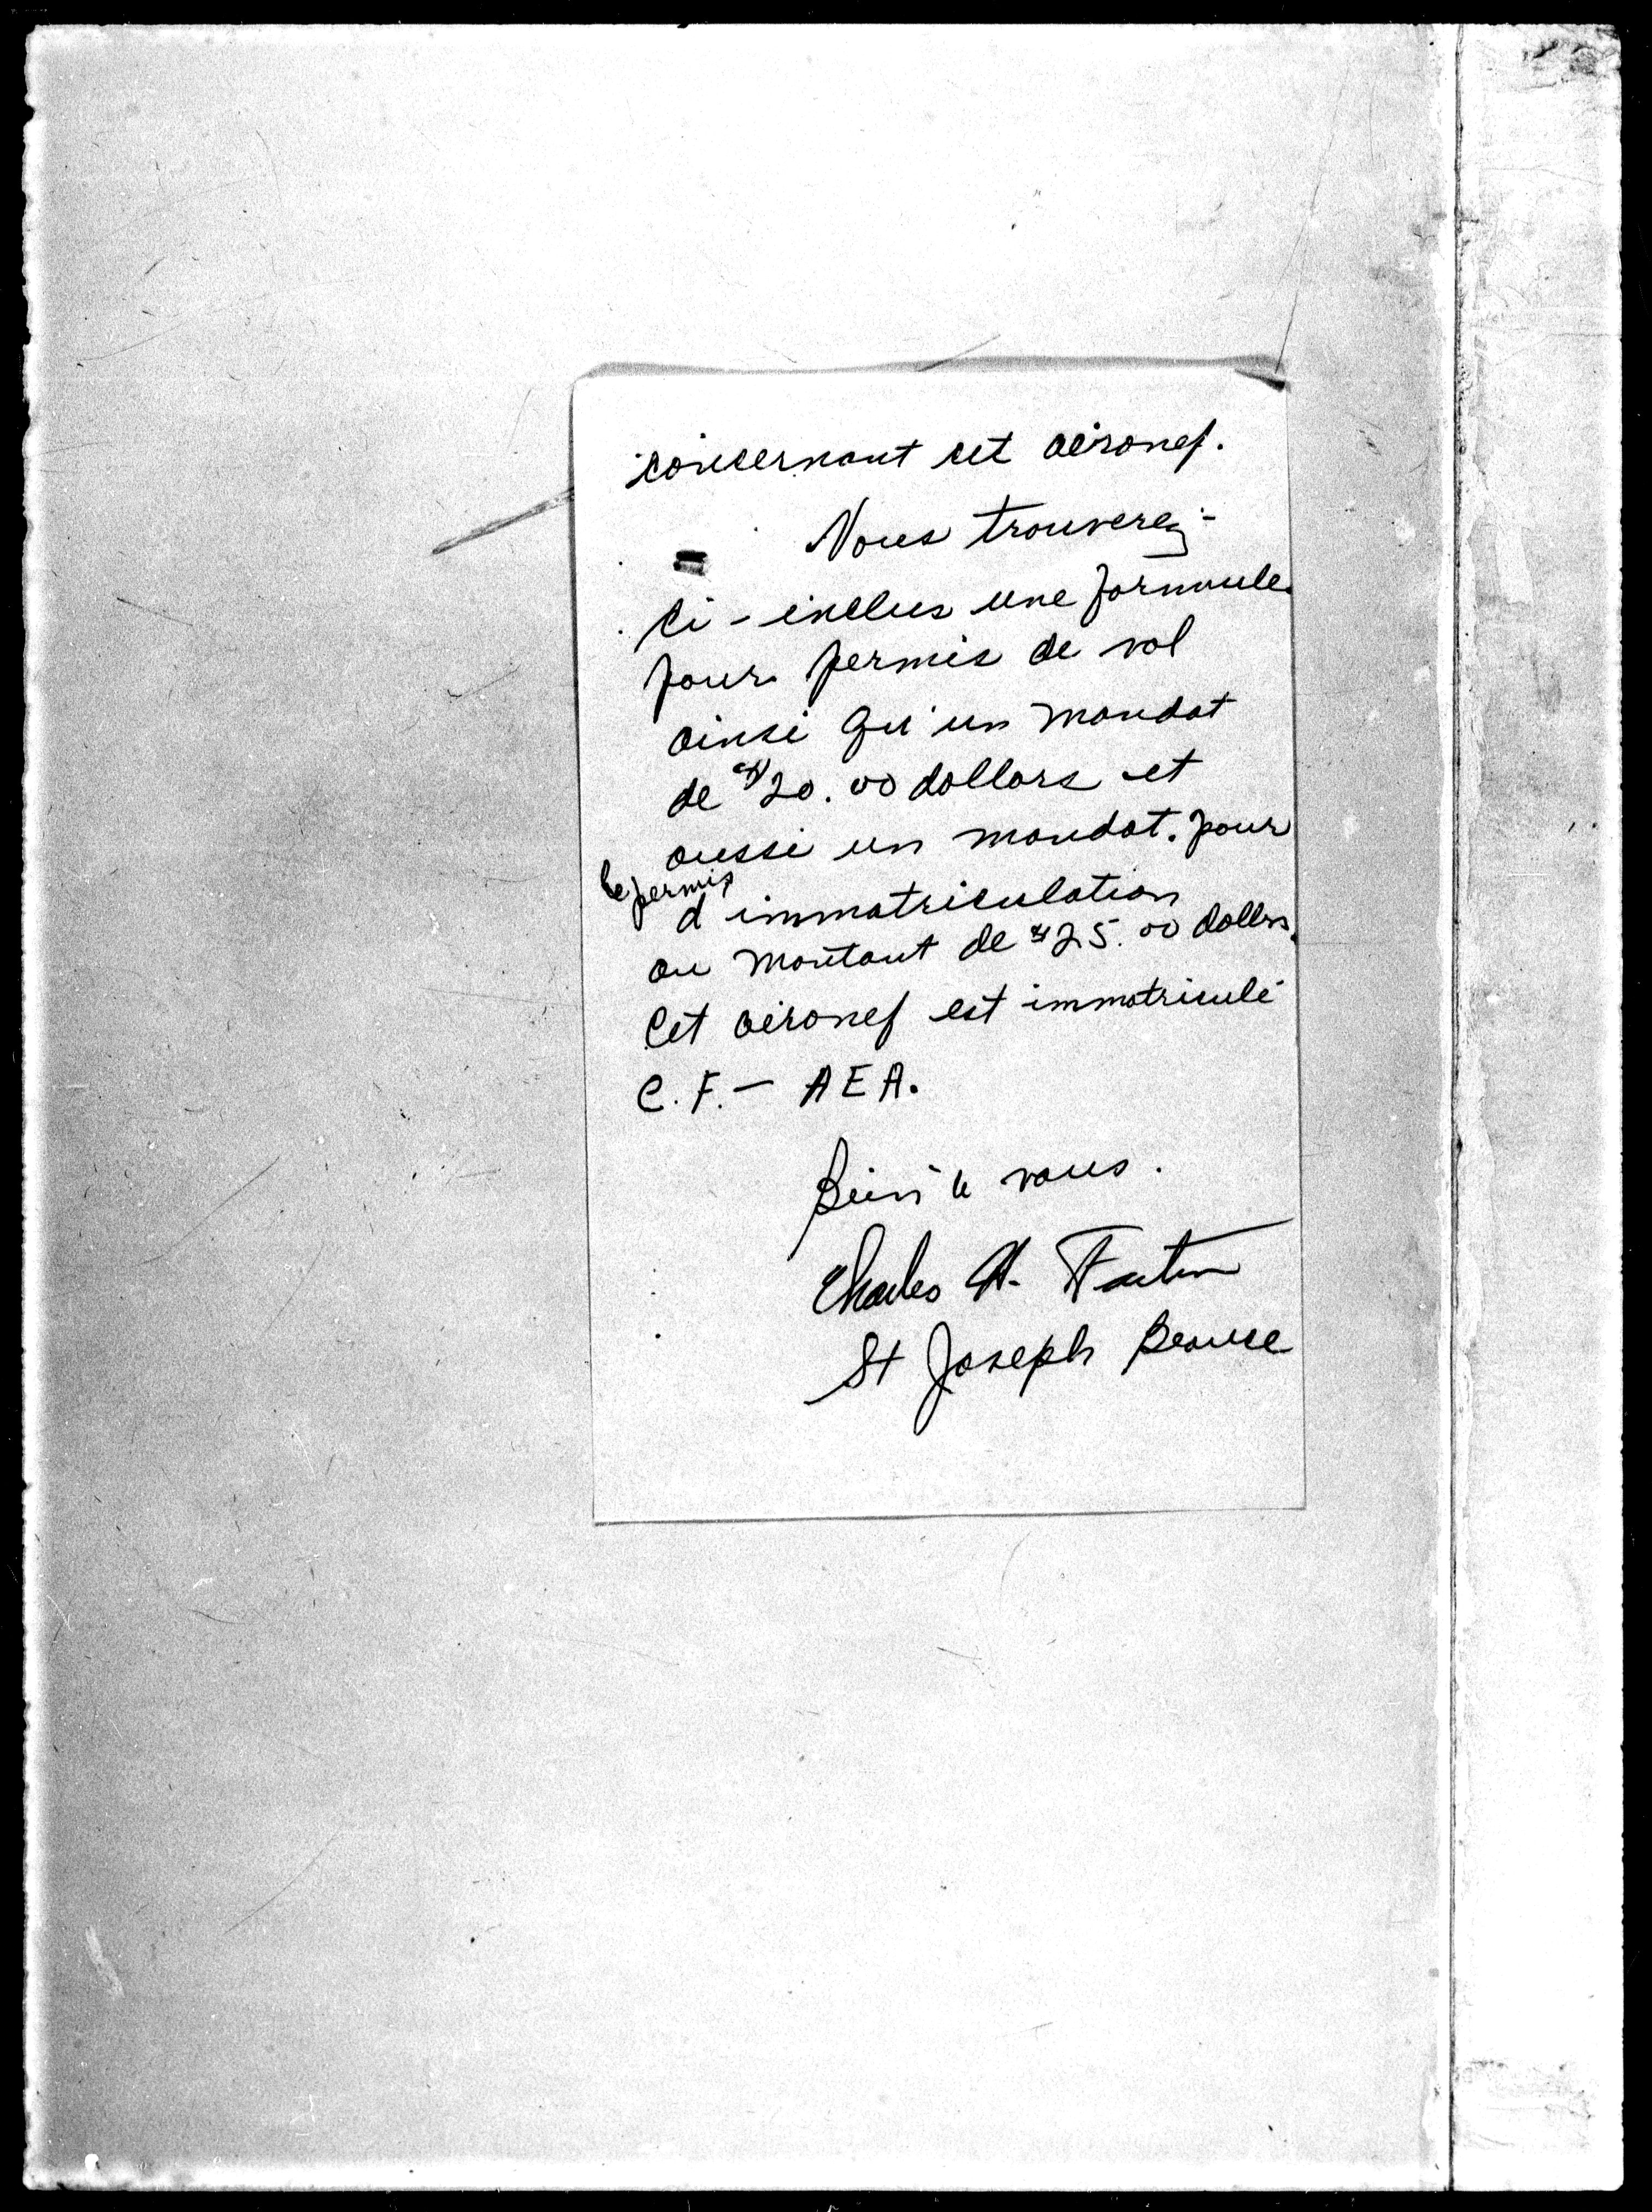 concernant cet aéronef.
Vous trouverez-
ci-inclus une formule
pour permis de vol
ainsi qu'un mandat
de $20.00 dollars et
aussi un mandat. pour
le permis
d'immatriculation
au montant de $25.00 dollars.
Cet aéronef est immatriculé
C.F.- AEA.
Bien à vous.
Charles H. Fortin
St Joseph Beauce